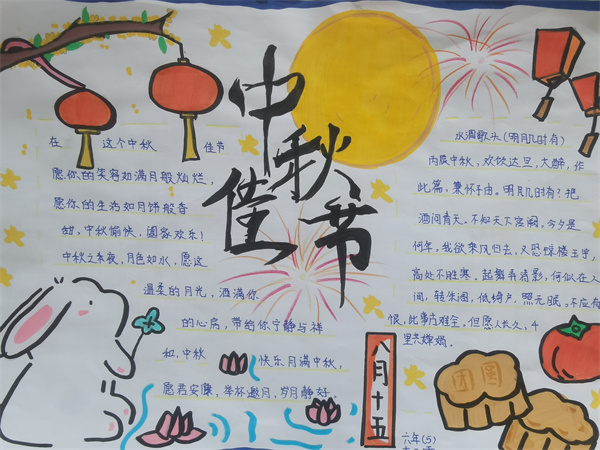 中秋佳节
在 这个中秋 佳节
愿你的笑容如满月般灿烂,
愿你的生活如月饼般香
甜,中秋愉快,团客欢乐!
中秋之素夜,月色如水,愿这
温柔的月光,洒满你
的心房,带给你宁静与祥
和,中秋 快乐月满中秋,
愿君安康,举杯邀月,岁月静好。
水调歌头(明月几时有)
丙辰中秋,欢饮达旦,大醉,作
此篇,兼怀子由。明月几时有?把
酒问青天,不知天下宫阙,今夕是
何年,我欲乘风归去,又恐琼楼玉宇,
高处不胜寒。起舞弄清影,何似在人
间,转朱阁,低绮户,照无眠,不应有
恨,此事古难全,但愿人长久,千
里共婵娟。
八月十五
团圆
六年(5)